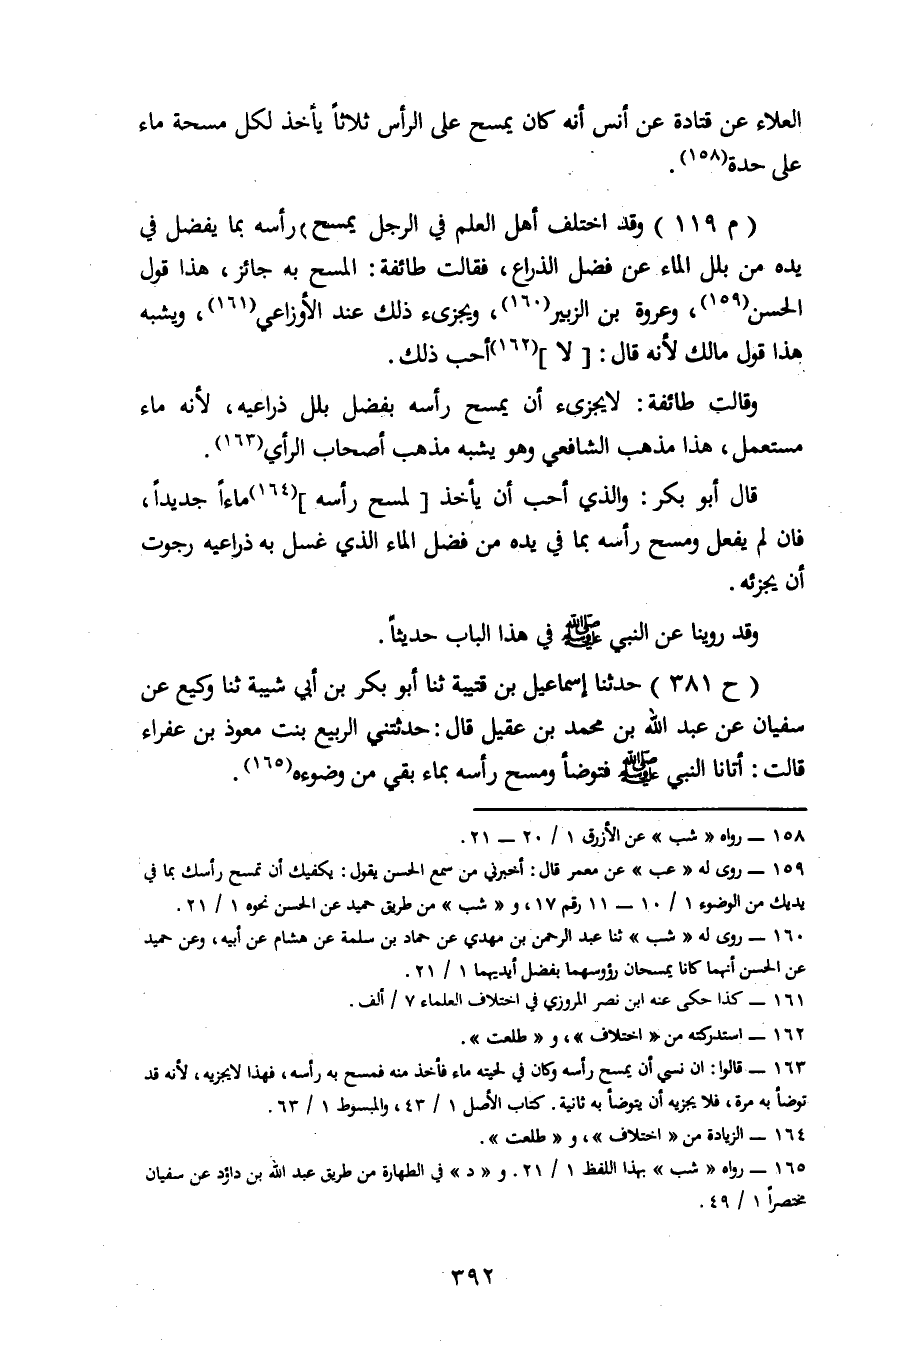 العلاء عن قتادة عن أنس أنه كان يمسح على الرأس ثلاثاً يأخذ لكل مسحة ماء
على حدة(١٥٨) .
( م ١١٩ ) وقد اختلف أهل العلم في الرجل يمسح) رأسه بما يفضل في
يده من بلل الماء عن فضل الذراع ، فقالت طائفة : المسح به جائز ، هذا قول
الحسن(١٥٩) ، وعروة بن الزبير(١٦٠) ، ويجزىء ذلك عند الأوزاعي(١٦١) ، ويشبه
هذا قول مالك لأنه قال : [ لا ](١٦٢)أحب ذلك .
وقالت طائفة : لايجزىء أن يمسح رأسه بفضل بلل ذراعيه ، لأنه ماء
مستعمل ، هذا مذهب الشافعي وهو يشبه مذهب أصحاب الرأي(١٦٣) .
قال أبو بكر : والذي أحب أن يأخذ [ لمسح رأسه ](١٦٤)ماءاً جديداً ،
فان لم يفعل ومسح رأسه بما في يده من فضل الماء الذي غسل به ذراعيه رجوت
أن يجزئه .
وقد روينا عن النبي ﷺ في هذا الباب حديثاً .
( ح ٣٨١ ) حدثنا إسماعيل بن قتيبة ثنا أبو بكر بن أبي شيبة ثنا وكيع عن
سفيان عن عبد الله بن محمد بن عقيل قال : حدثتني الربيع بنت معوذ بن عفراء
قالت : أتانا النبي ﷺ فتوضأ ومسح رأسه بماء بقي من وضوءه(١٦٥) .
١٥٨ — رواه « شب » عن الأزرق ١ / ٢٠ — ٢١ .
١٥٩ — روى له « عب » عن معمر قال : أخبرني من سمع الحسن يقول : يكفيك أن تمسح رأسك بما في
يديك من الوضوء ١ / ١٠ — ١١ رقم ١٧ ، و « شب » من طريق حميد عن الحسن نحوه ١ / ٢١ .
١٦٠ — روى له « شب » ثنا عبد الرحمن بن مهدي عن حماد بن سلمة عن هشام عن أبيه ، وعن حميد
عن الحسن أنهما كانا يمسحان رؤوسهما بفضل أيديهما ١ / ٢١ .
١٦١ — كذا حكى عنه ابن نصر المروزي في اختلاف العلماء ٧ / ألف .
١٦٢ — استدركته من « اختلاف » ، و « طلعت » .
١٦٣ — قالوا : ان نسي أن يمسح رأسه وكان في لحيته ماء فأخذ منه فمسح به رأسه ، فهذا لايجزيه ، لأنه قد
توضأ به مرة ، فلا يجزيه أن يتوضأ به ثانية . كتاب الأصل ١ / ٤٣ ، والمبسوط ١ / ٦٣ .
١٦٤ — الزيادة من « اختلاف » ، و « طلعت » .
١٦٥ — رواه « شب » بهذا اللفظ ١ / ٢١ . و « د » في الطهارة من طريق عبد الله بن داؤد عن سفيان
مختصراً ١ / ٤٩ .
٣٩٢